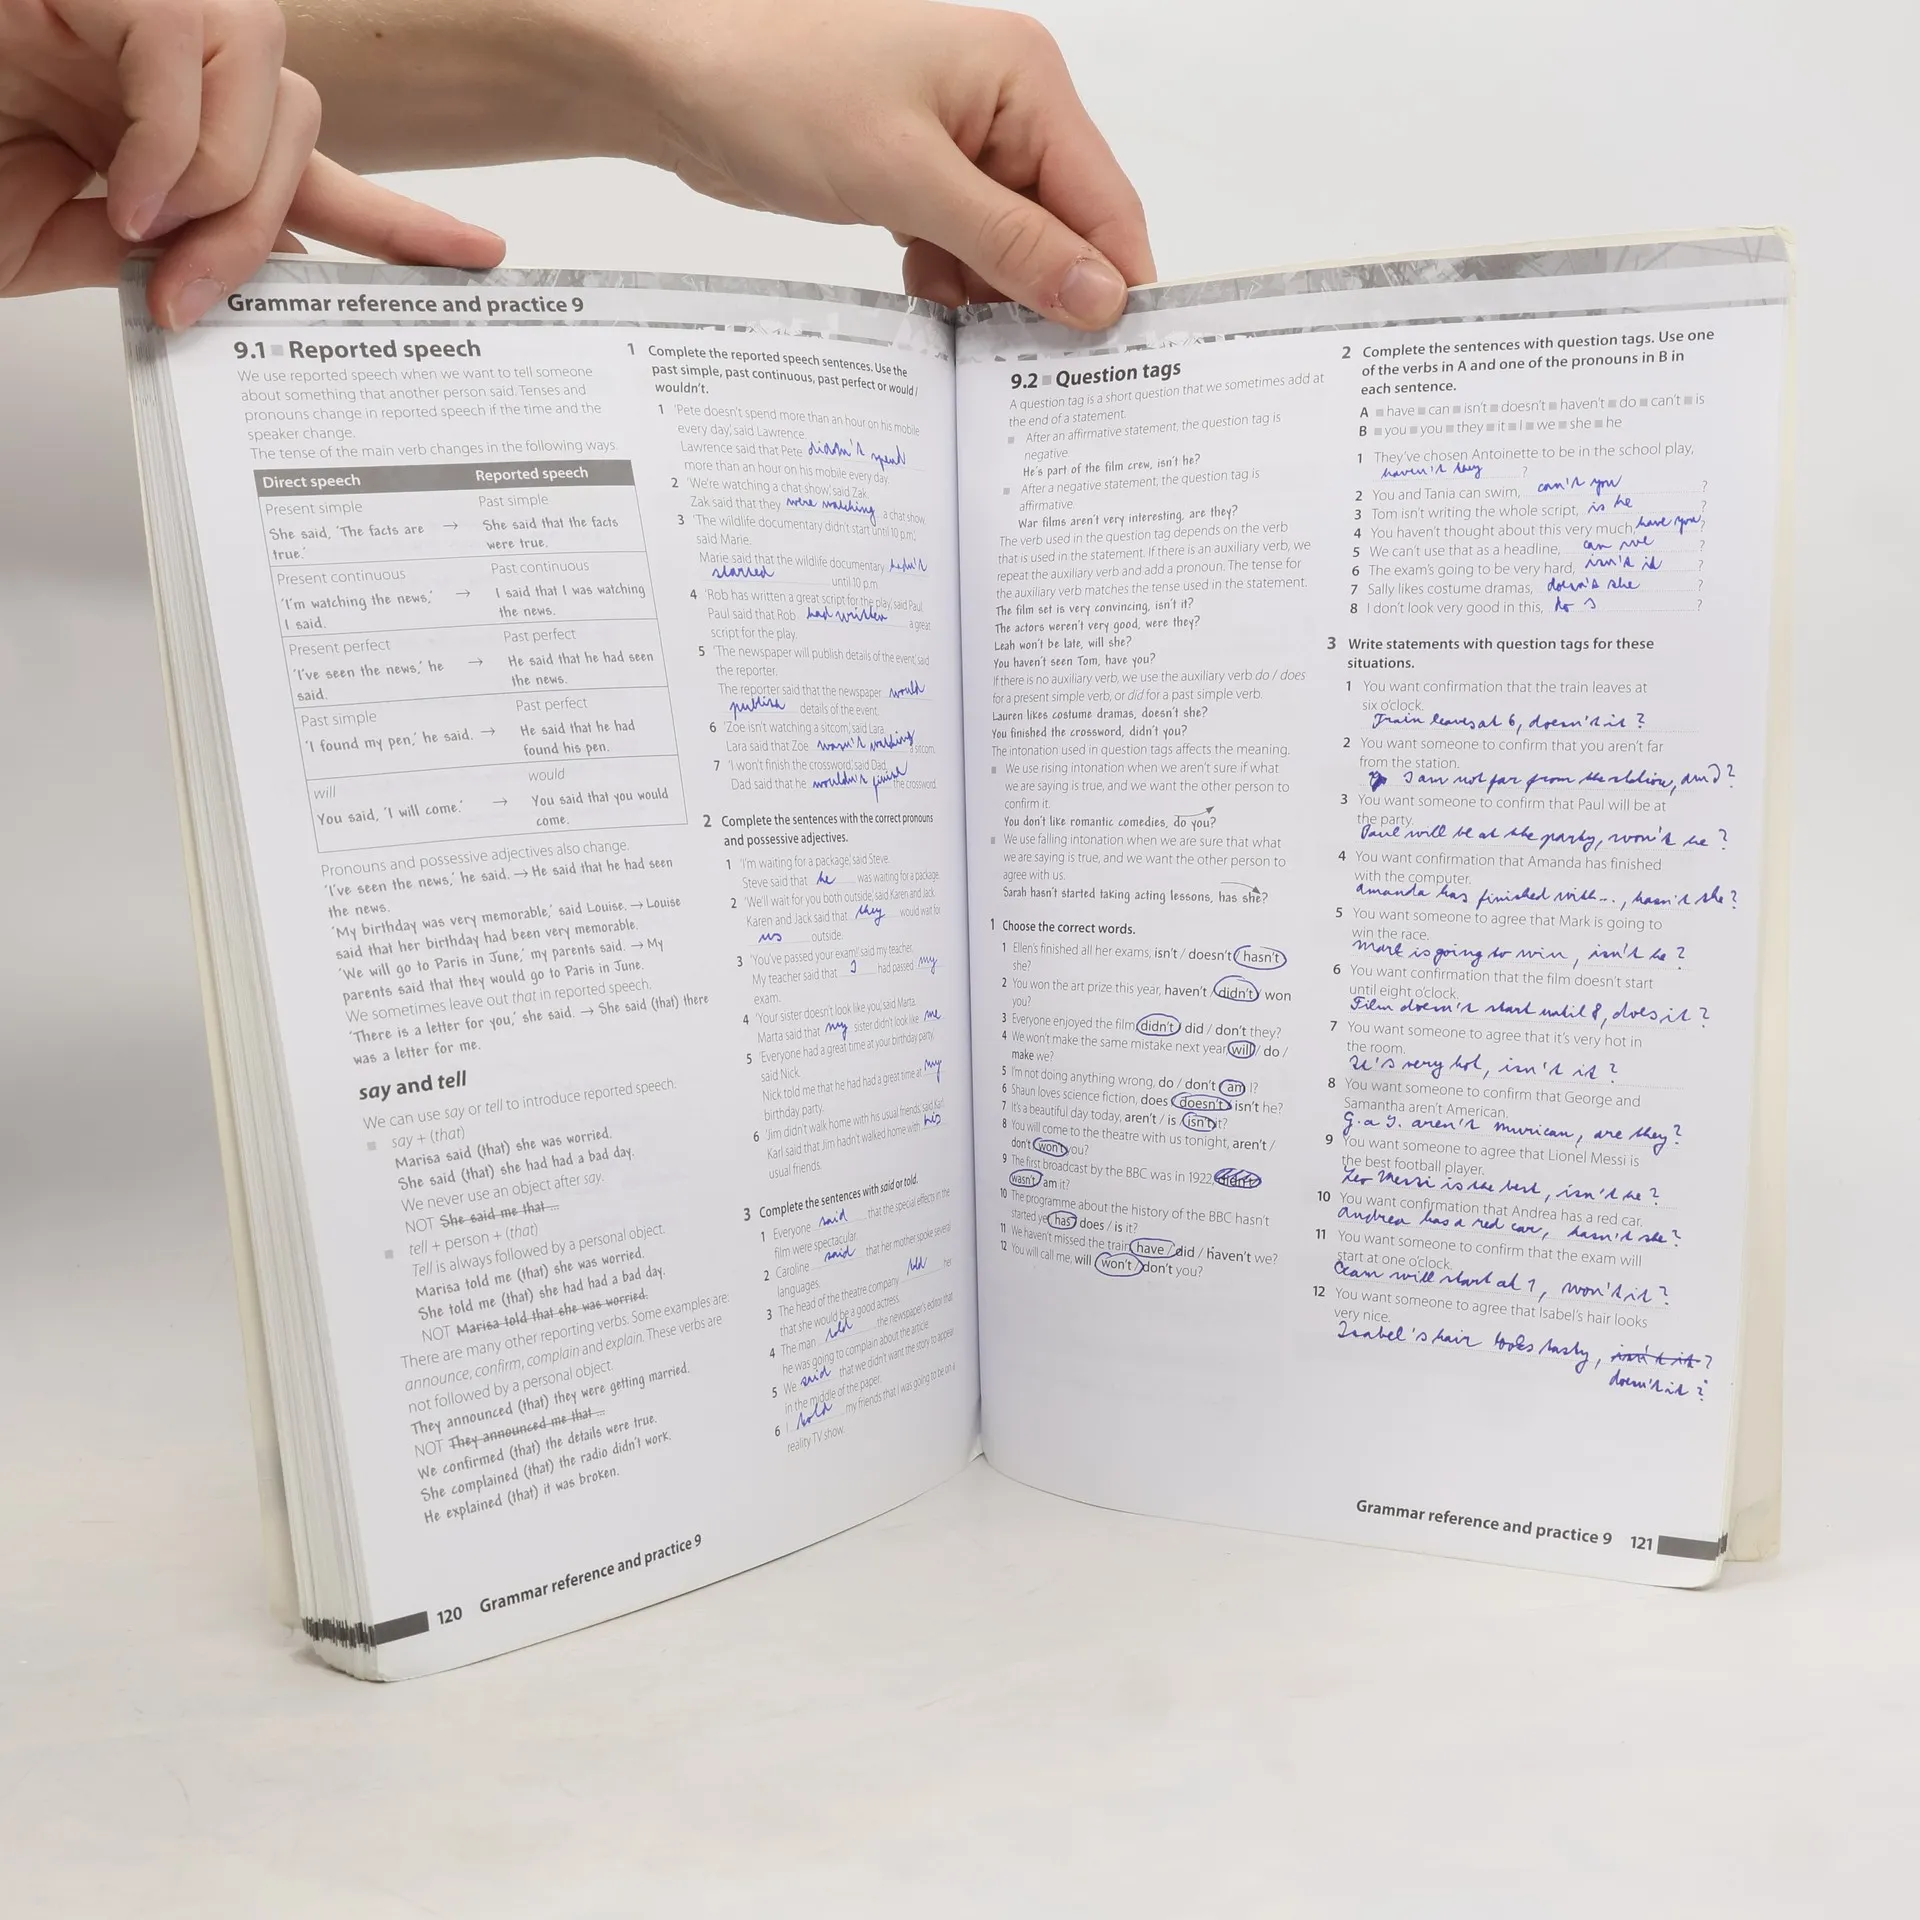 Grammar reference and practice 9
9.1 Reported speech
We use reported speech when we want to tell someone
about something that another person said. Tenses and
pronouns change in reported speech if the time and the
speaker change.
The tense of the main verb changes in the following ways.
Direct speech Reported speech
Present simple Past simple
She said, 'The facts are → She said that the facts
true.' were true.
Present continuous Past continuous
'I'm watching the news,' → I said that I was watching
I said. the news.
Present perfect Past perfect
'I've seen the news,' he → He said that he had seen
said. the news.
Past simple Past perfect
'I found my pen,' he said. → He said that he had
found his pen.
will would
You said, 'I will come.' → You said that you would
come.
Pronouns and possessive adjectives also change.
'I've seen the news,' he said. → He said that he had seen
the news.
'My birthday was very memorable,' said Louise. → Louise
said that her birthday had been very memorable.
'We will go to Paris in June,' my parents said. → My
parents said that they would go to Paris in June.
We sometimes leave out that in reported speech.
'There is a letter for you,' she said. → She said (that) there
was a letter for me.
say and tell
We can use say or tell to introduce reported speech.
say + (that)
Marisa said (that) she was worried.
She said (that) she had had a bad day.
We never use an object after say.
NOT She said me that ...
tell + person + (that)
Tell is always followed by a personal object.
Marisa told me (that) she was worried.
She told me (that) she had had a bad day.
NOT Marisa told that she was worried.
There are many other reporting verbs. Some examples are:
announce, confirm, complain and explain. These verbs are
not followed by a personal object.
They announced (that) they were getting married.
NOT They announced me that ...
We confirmed (that) the details were true.
She complained (that) the radio didn't work.
He explained (that) it was broken.
120 Grammar reference and practice 9
1 Complete the reported speech sentences. Use the
past simple, past continuous, past perfect or would /
wouldn't.
1 'Pete doesn't spend more than an hour on his mobile
every day,' said Lawrence.
Lawrence said that Pete didn't spend
more than an hour on his mobile every day.
2 'We're watching a chat show,' said Zak.
Zak said that they were watching a chat show.
3 'The wildlife documentary didn't start until 10 p.m.,'
said Marie.
Marie said that the wildlife documentary hadn't
started until 10 p.m.
4 'Rob has written a great script for the play,' said Paul.
Paul said that Rob had written a great
script for the play.
5 'The newspaper will publish details of the event,' said
the reporter.
The reporter said that the newspaper would
publish details of the event.
6 'Zoe isn't watching a sitcom,' said Lara.
Lara said that Zoe wasn't watching a sitcom.
7 'I won't finish the crossword,' said Dad.
Dad said that he wouldn't finish the crossword.
2 Complete the sentences with the correct pronouns
and possessive adjectives.
1 'I'm waiting for a package,' said Steve.
Steve said that he was waiting for a package.
2 'We'll wait for you both outside,' said Karen and Jack.
Karen and Jack said that they would wait for
us outside.
3 'You've passed your exam!' said my teacher.
My teacher said that I had passed my
exam.
4 'Your sister doesn't look like you,' said Marta.
Marta said that my sister didn't look like me
5 'Everyone had a great time at your birthday party,'
said Nick.
Nick told me that he had had a great time at my
birthday party.
6 'Jim didn't walk home with his usual friends,' said Karl.
Karl said that Jim hadn't walked home with his
usual friends.
3 Complete the sentences with said or told.
1 Everyone said that the special effects in the
film were spectacular.
2 Caroline said that her mother spoke several
languages.
3 The head of the theatre company told her
that she would be a good actress.
4 The man told the newspaper's editor that
he was going to complain about the article.
5 We said that we didn't want the story to appear
in the middle of the paper.
6 I told my friends that I was going to be on a
reality TV show.
9.2 Question tags
A question tag is a short question that we sometimes add at
the end of a statement.
After an affirmative statement, the question tag is
negative.
He's part of the film crew, isn't he?
After a negative statement, the question tag is
affirmative.
War films aren't very interesting, are they?
The verb used in the question tag depends on the verb
that is used in the statement. If there is an auxiliary verb, we
repeat the auxiliary verb and add a pronoun. The tense for
the auxiliary verb matches the tense used in the statement.
The film set is very convincing, isn't it?
The actors weren't very good, were they?
Leah won't be late, will she?
You haven't seen Tom, have you?
If there is no auxiliary verb, we use the auxiliary verb do / does
for a present simple verb, or did for a past simple verb.
Lauren likes costume dramas, doesn't she?
You finished the crossword, didn't you?
The intonation used in question tags affects the meaning.
We use rising intonation when we aren't sure if what
we are saying is true, and we want the other person to
confirm it.
You don't like romantic comedies, do you?
We use falling intonation when we are sure that what
we are saying is true, and we want the other person to
agree with us.
Sarah hasn't started taking acting lessons, has she?
1 Choose the correct words.
1 Ellen's finished all her exams, isn't / doesn't / hasn't
she?
2 You won the art prize this year, haven't / didn't / won
you?
3 Everyone enjoyed the film, didn't / did / don't they?
4 We won't make the same mistake next year, will / do /
make we?
5 I'm not doing anything wrong, do / don't / am I?
6 Shaun loves science fiction, does / doesn't / isn't he?
7 It's a beautiful day today, aren't / is / isn't it?
8 You will come to the theatre with us tonight, aren't /
don't / won't you?
9 The first broadcast by the BBC was in 1922, didn't /
wasn't / am it?
10 The programme about the history of the BBC hasn't
started yet, has / does / is it?
11 We haven't missed the train, have / did / haven't we?
12 You will call me, will / won't / don't you?
2 Complete the sentences with question tags. Use one
of the verbs in A and one of the pronouns in B in
each sentence.
A have can isn't doesn't haven't do can't is
B you you they it I we she he
1 They've chosen Antoinette to be in the school play,
haven't they ?
2 You and Tania can swim, can't you ?
3 Tom isn't writing the whole script, is he ?
4 You haven't thought about this very much, have you ?
5 We can't use that as a headline, can we ?
6 The exam's going to be very hard, isn't it ?
7 Sally likes costume dramas, doesn't she ?
8 I don't look very good in this, do I ?
3 Write statements with question tags for these
situations.
1 You want confirmation that the train leaves at
six o'clock.
Train leaves at 6, doesn't it?
2 You want someone to confirm that you aren't far
from the station.
I am not far from the station, am I?
3 You want someone to confirm that Paul will be at
the party.
Paul will be at the party, won't he?
4 You want confirmation that Amanda has finished
with the computer.
Amanda has finished with..., hasn't she?
5 You want someone to agree that Mark is going to
win the race.
Mark is going to win, isn't he?
6 You want confirmation that the film doesn't start
until eight o'clock.
Film doesn't start until 8, does it?
7 You want someone to agree that it's very hot in
the room.
It's very hot, isn't it?
8 You want someone to confirm that George and
Samantha aren't American.
G. a S. aren't murican, are they?
9 You want someone to agree that Lionel Messi is
the best football player.
Leo Messi is the best, isn't he?
10 You want confirmation that Andrea has a red car.
Andrea has a red car, hasn't she?
11 You want someone to confirm that the exam will
start at one o'clock.
Exam will start at 1, won't it?
12 You want someone to agree that Isabel's hair looks
very nice.
Isabel's hair looks tasty, isn't it?
doesn't it?
Grammar reference and practice 9 121